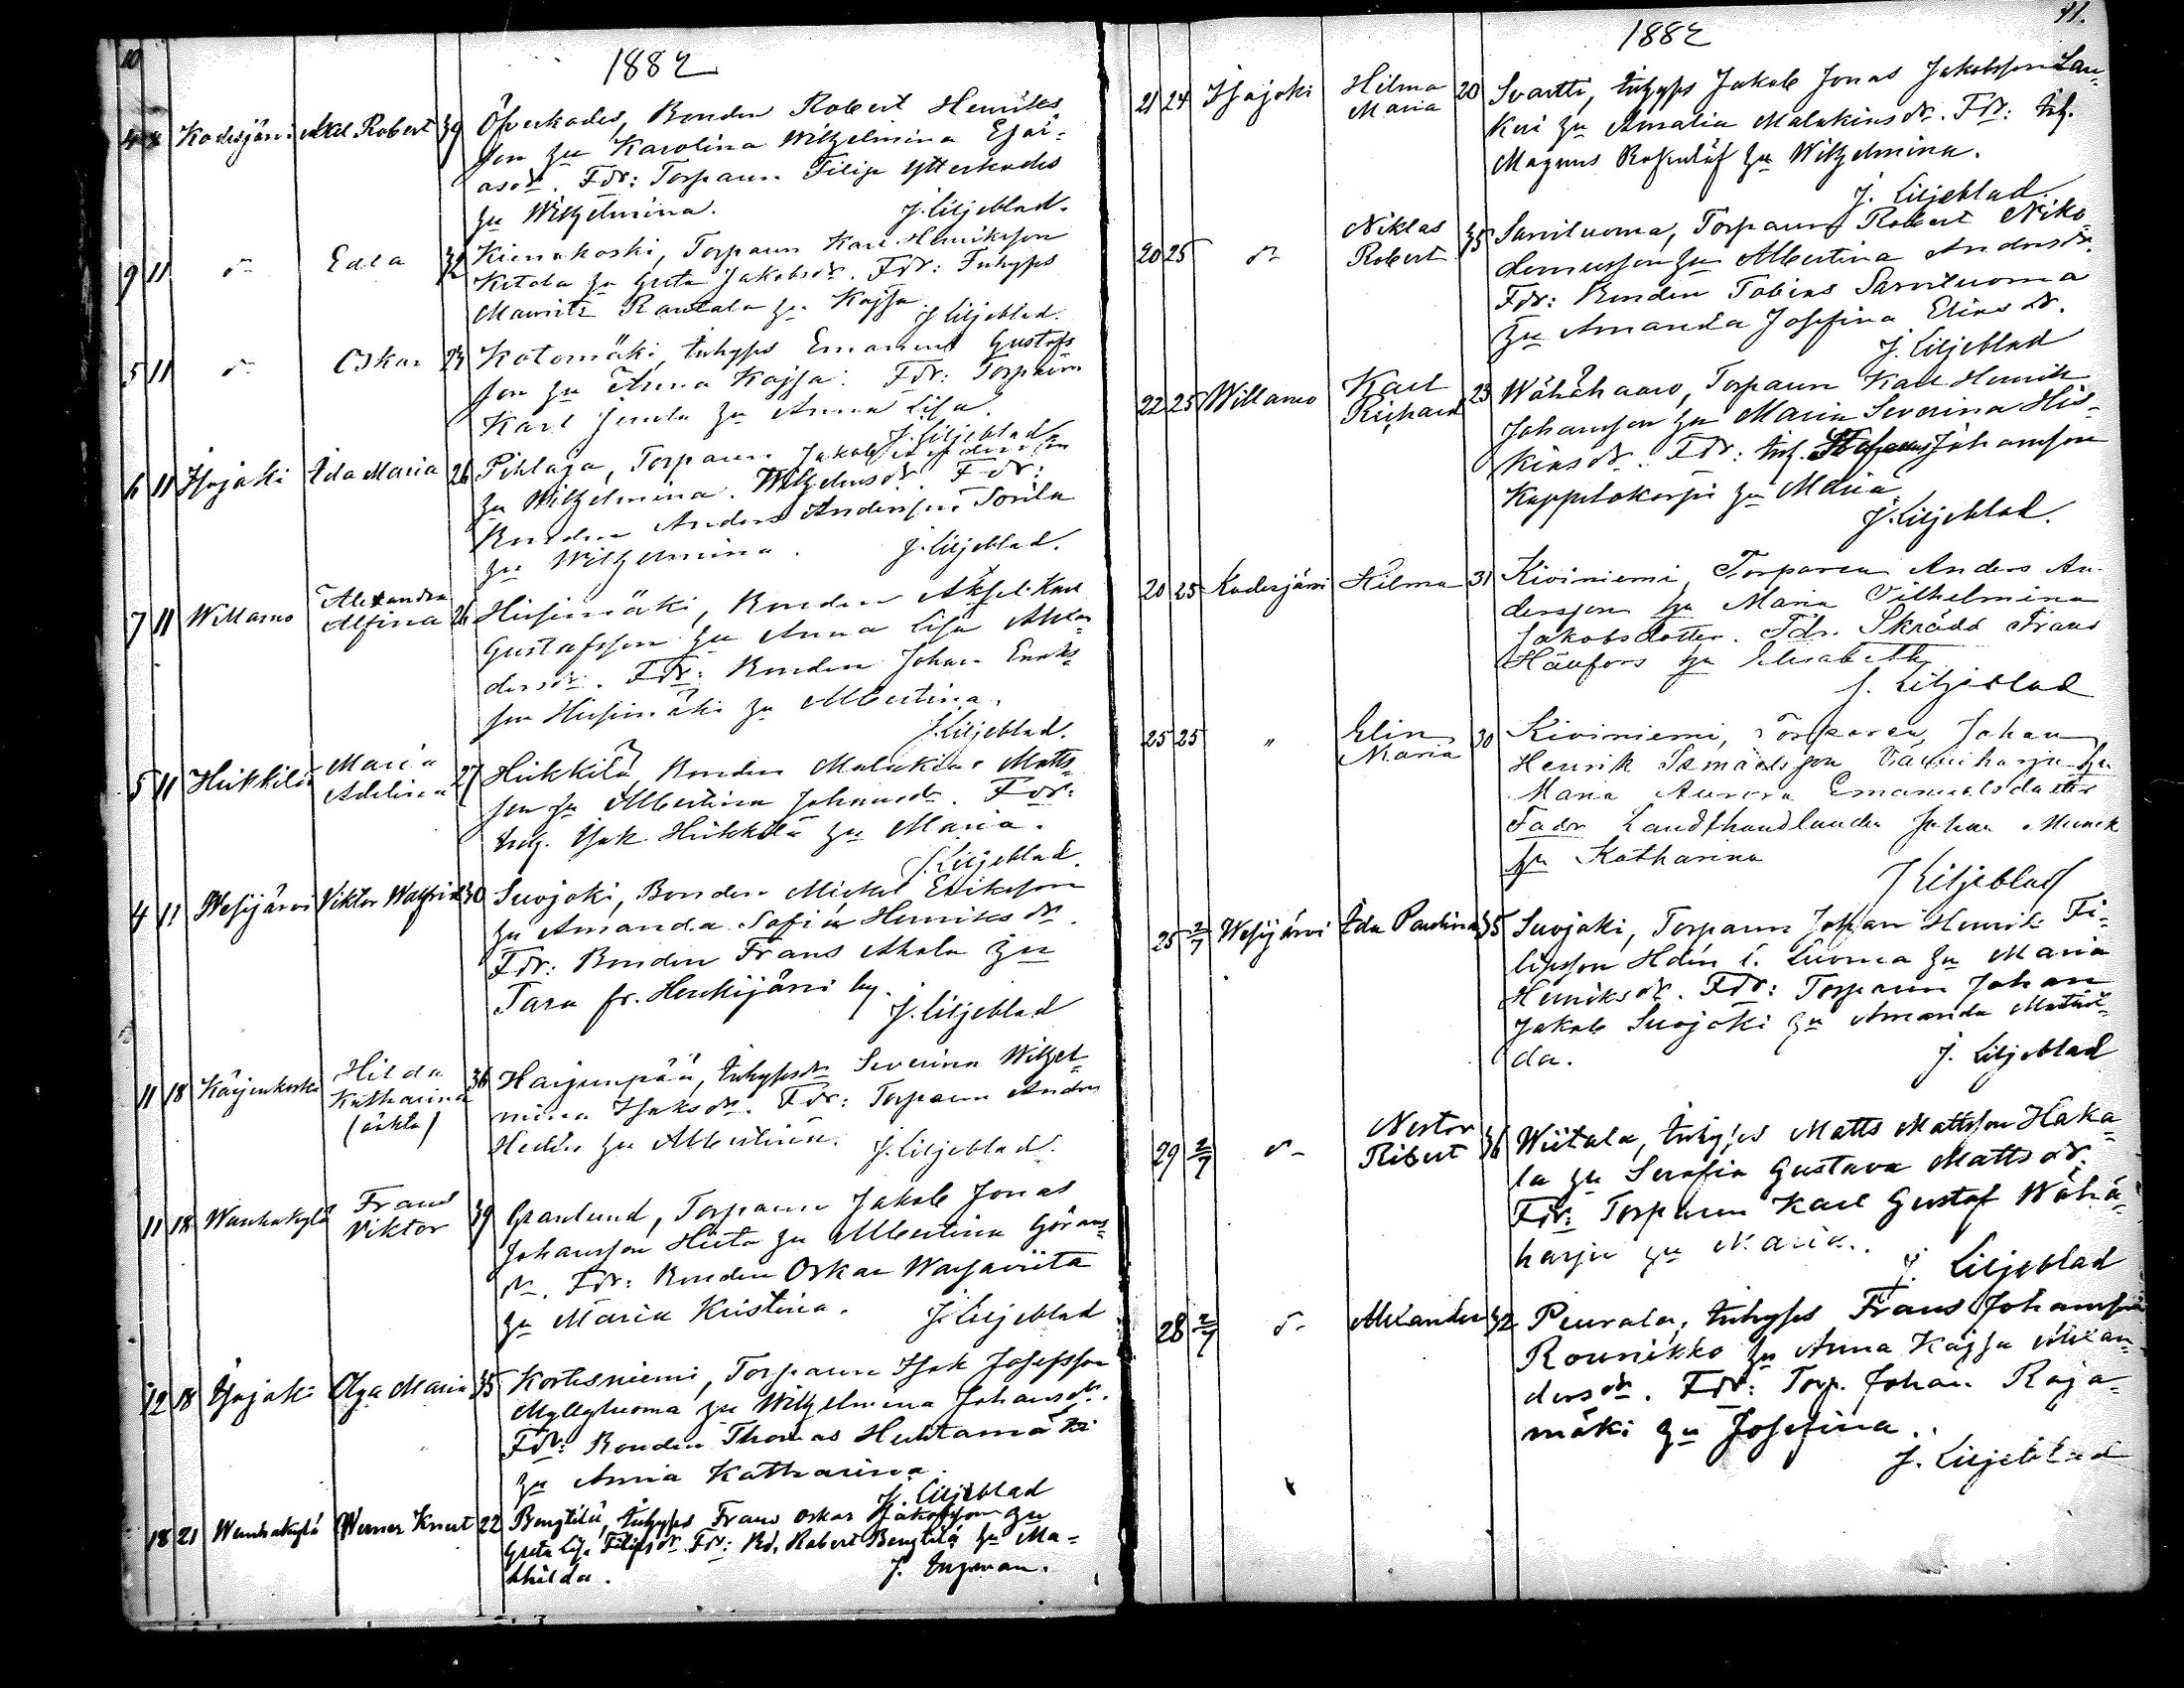 10
1882
4 4 Kodesjärvi Axel Robert 39 Öfverkades, Bonden Robert Henriks
son hu Karolina Wilhelmina Esai-
asdr. Fdr: Torparen Filip Ytterkades
hu Wilhelmina. J. Liljeblad.
9 11 d- Edla Kienakoski, Torparen Karl Henriksson
Kitola hu Greta Jakobsdr. Fdr: Inhyses
Maurits Rantala hu Kajsa. J Liljeblad.
5 11 d- Oskar 24 Katomäki, Inhyses Emanuel Gustafs
son hu Anna Kajsa. Fdr: Torparen
Karl hu Anna Lisa.
J. Liljeblad.
6 11 Isojoki Ida Maria 26 Pihlaja, Torparen Jakob
hu Wilhelmina Wilhelmsdr. Fdr:
Bonden Anders Andersson Sorila
hu Wilhelmina. J. Liljeblad.
7 11 Willamo Alexandra
Alfina 26 Hirsimäki, Bonden Aksel Karl
Gustafsson hu Anna Lisa Alexan
dersdr. Fdr: Bonden Johan Eriks
son Hirsimäki hu Albertina.
J. Liljeblad.
5 11 Heikkilä Maria
Adelina 27 Heikkilä, Bonden Malakias Matts
son hu Albertina Johansdr. Fdr:
Inh. Isak Heikkilä hu Maria.
J. Liljeblad.
4 11 Wesijärvi Viktor Walfrid 30 Suojoki, Bonden Mickel Eriksson
hu Amanda Sofia Henriksdr.
Fdr: Bonden Frans Ahola hu
Sara fr. Henkijärvi by.
J. Liljeblad
11 18 Kärjenkoski Hilda
Katharina
(oäkta) 36 Harjunpää, Inhysesdr Severina Wilhel-
mina Isaksdr. Fdr: Torparen Anders
hu Albertina. J. Liljeblad.
11 18 Wanhakylä Frans
Viktor 39 Granlund, Torparen Jakob Jonas
Johansson Hieta hu Albertina Görans-
dr. Fdr: Bonden Oskar Warsaviita
hu Maria Kristina. J. Liljeblad
12 18 Isojoki Olga Maria 35 Kortesniemi, Torparen Isak Josefsson
Myllyluoma hu Wilhelmina Johansdr.
Fdr: Bonden Thomas Huhtamäki
hu Anna Katharina.
J. Liljeblad
18 21 Wanhakylä Werner Knut 22 Bengtilä, Inhyses Frans Oskar Jakobsson hu
Greta Lisa Filipsdr. Fdr: Bd. Robert Bengtilä hu Ma-
thilda. J. Engman.
41.
1882
21 24 Isojoki Hilma
Maria 20 Svartti, Inhyses Jakob Jonas Jakobsson Lau-
keri hu Amalia Malakiasdr. Fdr: Inh.
Magnus Rosenlöf hu Wilhelmina.
J. Liljeblad.
20 25 d- Niklas
Robert 35 Sarviluoma, Torparen Robert Niko
demusson hu Albertina Andersdr.
Fdr: Bonden Tobias Sarviluoma
hu Amanda Josefina Eliasdr.
J. Liljeblad
22 25 Willamo Karl
Richard 23 Wähähaaro, Torparen Karl Henrik
Johansson hu Maria Severina His-
kiasdr. Fdr: Inh. Johansson
Kuppilokorpi hu Maria.
J. Liljeblad.
20 25 Kodesjärvi Hilma 31 Kiviniemi, Torparen Anders An-
dersson hu Maria Vilhelmina
Jakobsdotter. Fdr. Skrädd. Frans
Häufors hu Elisabeth
J. Liljeblad
25 25 " Elin
Maria 30 Kiviniemi, Torparen Johan
Henrik Samuelsson Väniharju hu
Maria Aurora Emanuelsdotter
Fadr Landthandlanden Johan Munck
hu Katharina
J Liljeblad
25 2/7 Wesijärvi Ida Paulina 35 Suojoki, Torparen Johan Henrik Fi-
lipsson Hdén l. Luoma hu Maria
Henriksdr. Fdr: Torparen Johan
Jakob Suojoki hu Amanda Mathil-
da. J. Liljeblad
29 2/7 d- Nestor
Robert 36 Wiitala, Inhyses Matts Mattsson Haka-
la hu Serafia Gustava Mattsdr.
Fdr: Torparen Karl Gustaf Wähä-
harju hu Maria. J. Liljeblad
28 2/7 d- Alexander 32 Peurala, Inhyses Frans Johansson
Rounikko hu Anna Kajsa Alexan-
dersdr. Fdr: Torp. Johan Raja-
mäki hu Josefina.
J. Liljeblad